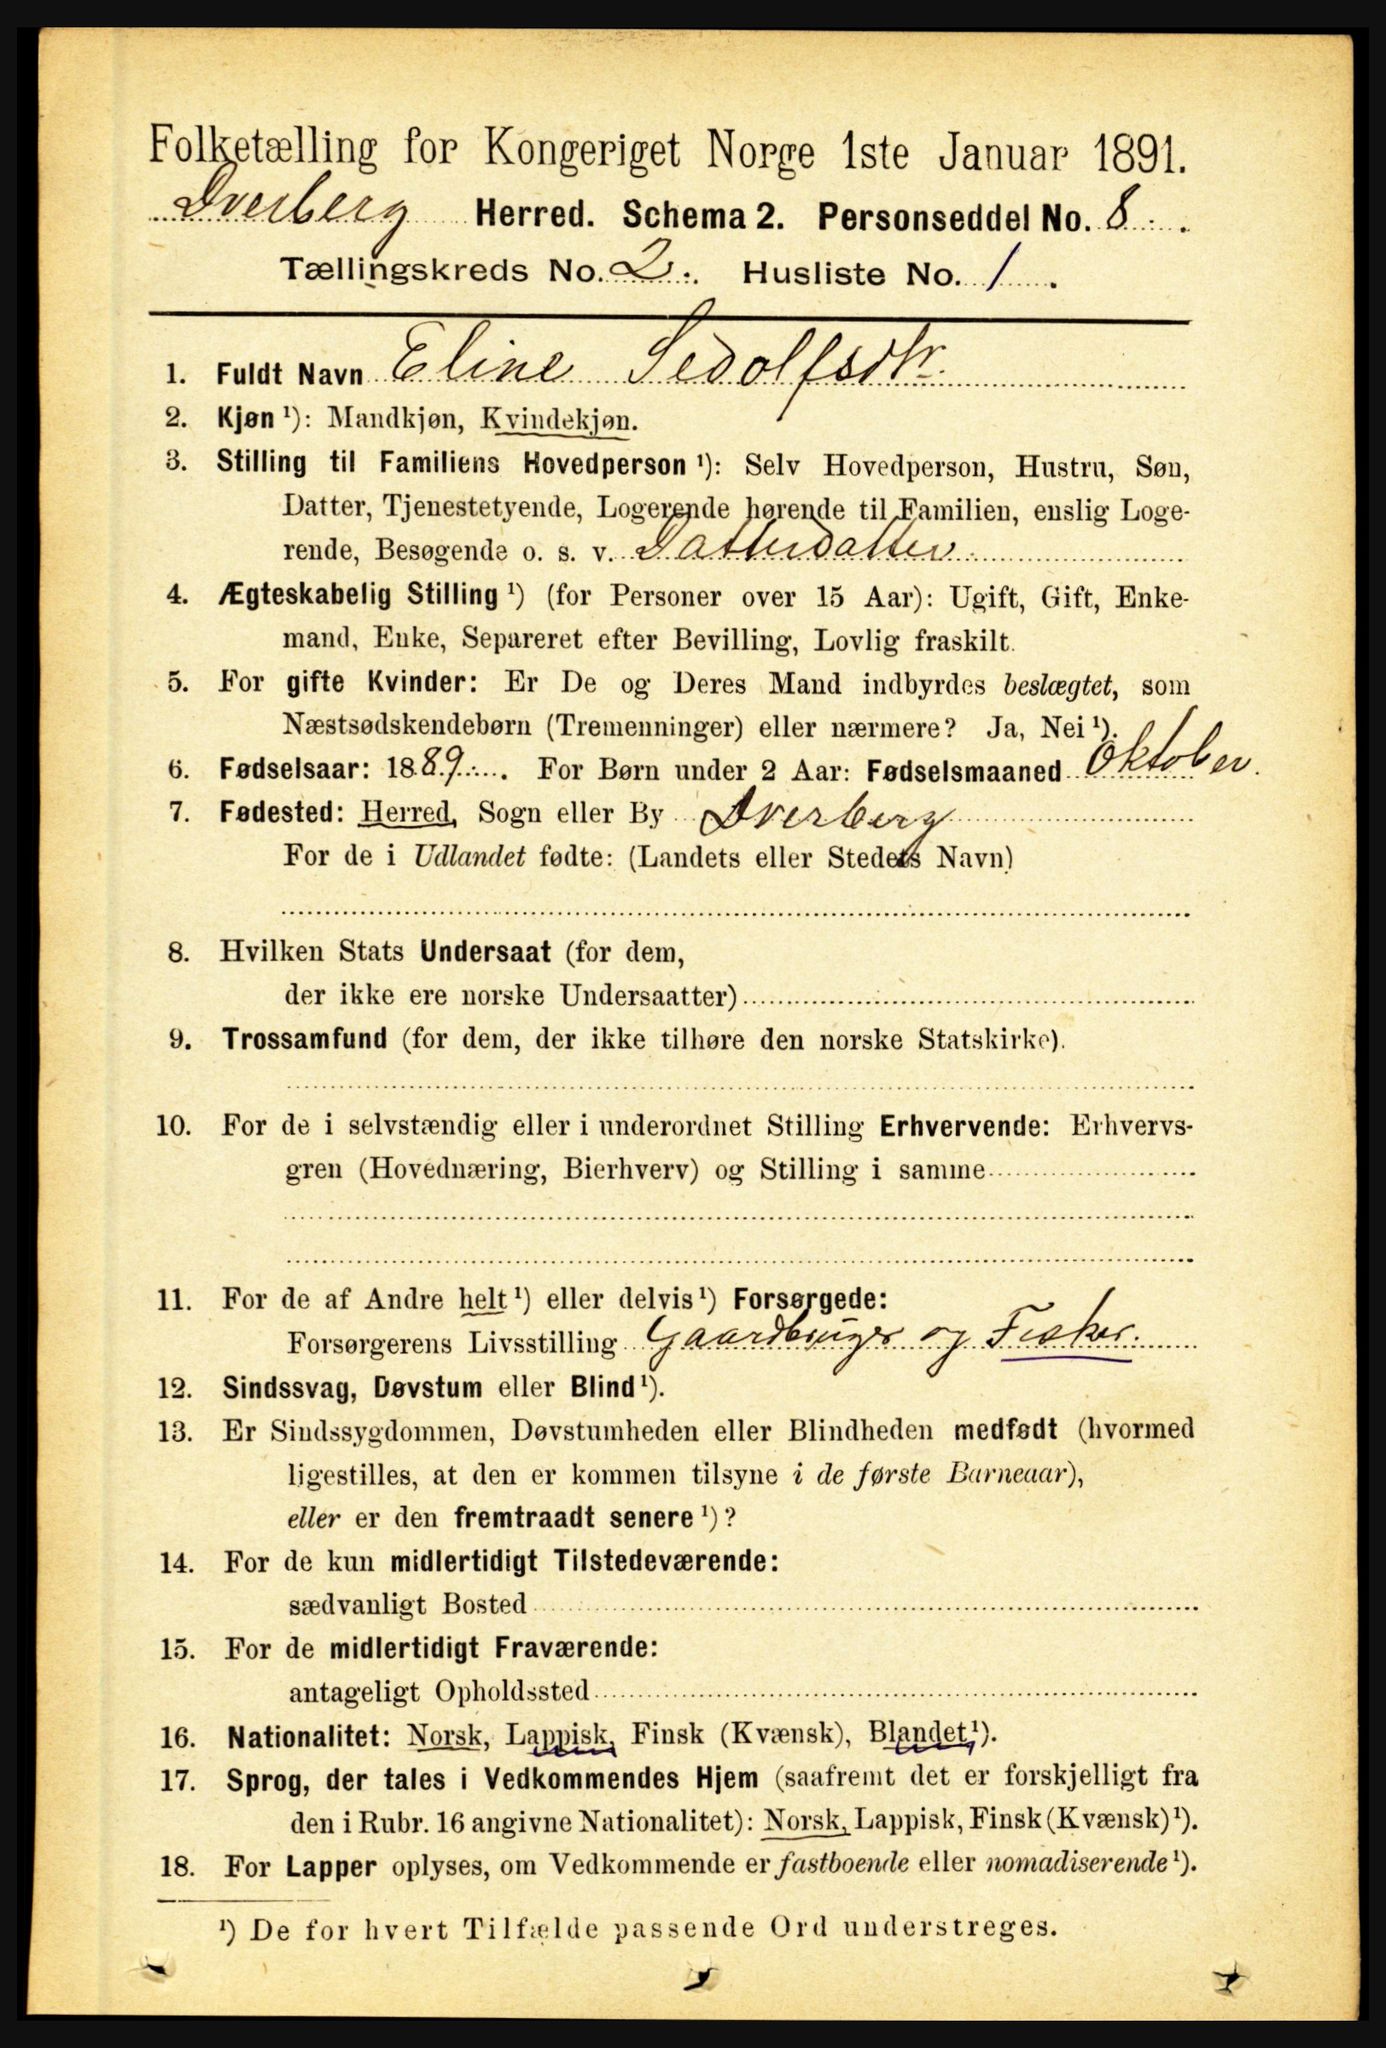 Folketælling for Kongeriget Norge 1ste Januar 1891.
Dverberg Herred. Schema 2. Personseddel No. 8.
Tællingskreds No. 2. Husliste No. 1.
1. Fuldt Navn Eline Sedolfsdtr.
2. Kjøn ¹): Mandkjøn, Kvindekjøn.
3. Stilling til Familiens Hovedperson ¹): Selv Hovedperson, Hustru, Søn,
Datter, Tjenestetyende, Logerende hørende til Familien, enslig Loge-
rende, Besøgende o. s. v. Datterdatter.
4. Ægteskabelig Stilling ¹) (for Personer over 15 Aar): Ugift, Gift, Enke-
mand, Enke, Separeret efter Bevilling, Lovlig fraskilt.
5. For gifte Kvinder: Er De og Deres Mand indbyrdes beslægtet, som
Næstsødskendebørn (Tremenninger) eller nærmere? Ja, Nei ¹).
6. Fødselsaar: 1889. For Børn under 2 Aar: Fødselsmaaned Oktober.
7. Fødested: Herred, Sogn eller By Dverberg
For de i Udlandet fødte: (Landets eller Stedets Navn)
8. Hvilken Stats Undersaat (for dem,
der ikke ere norske Undersaatter)
9. Trossamfund (for dem, der ikke tilhøre den norske Statskirke).
10. For de i selvstændig eller i underordnet Stilling Erhvervende: Erhvervs-
gren (Hovednæring, Bierhverv) og Stilling i samme
11. For de af Andre helt ¹) eller delvis ¹) Forsørgede:
Forsørgerens Livsstilling Gaardbruger og Fisker.
12. Sindssvag, Døvstum eller Blind ¹).
13. Er Sindssygdommen, Døvstumheden eller Blindheden medfødt (hvormed
ligestilles, at den er kommen tilsyne i de første Barneaar),
eller er den fremtraadt senere ¹)?
14. For de kun midlertidigt Tilstedeværende:
sædvanligt Bosted
15. For de midlertidigt Fraværende:
antageligt Opholdssted
16. Nationalitet: Norsk, Lappisk, Finsk (Kvænsk), Blandet ¹).
17. Sprog, der tales i Vedkommendes Hjem (saafremt det er forskjelligt fra
den i Rubr. 16 angivne Nationalitet): Norsk, Lappisk, Finsk (Kvænsk) ¹).
18. For Lapper oplyses, om Vedkommende er fastboende eller nomadiserende ¹).
¹) De for hvert Tilfælde passende Ord understreges.